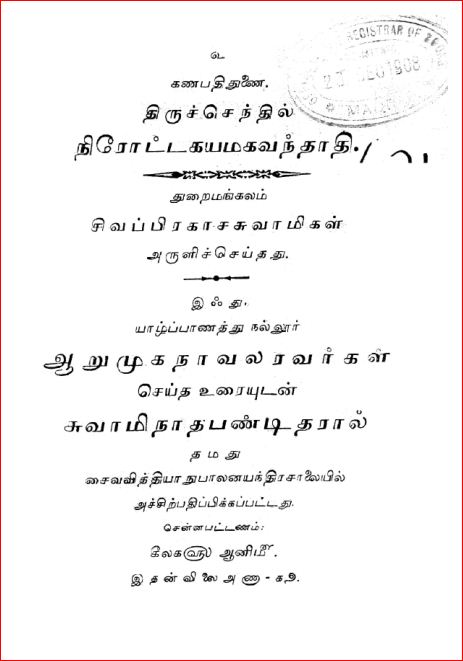 உ
கணபதிதுணை.
திருச்செந்தில்
நிரோட்டகயமகவந்தாதி.
துறைமங்கலம்
சிவப்பிரகாசசுவாமிகள்
அருளிச்செய்தது.
இஃது,
யாழ்ப்பாணத்து நல்லூர்
ஆறுமுகநாவலரவர்கள்
செய்த உரையுடன்
சுவாமிநாதபண்டிதரால்
தமது
சைவவித்தியாநுபாலனயந்திரசாலையில்
அச்சிற்பதிப்பிக்கப்பட்டது.
சென்னபட்டணம்:
கீலக௵ ஆனி௴.
இதன் விலை அணா - க
REGISTRAR OF
1908